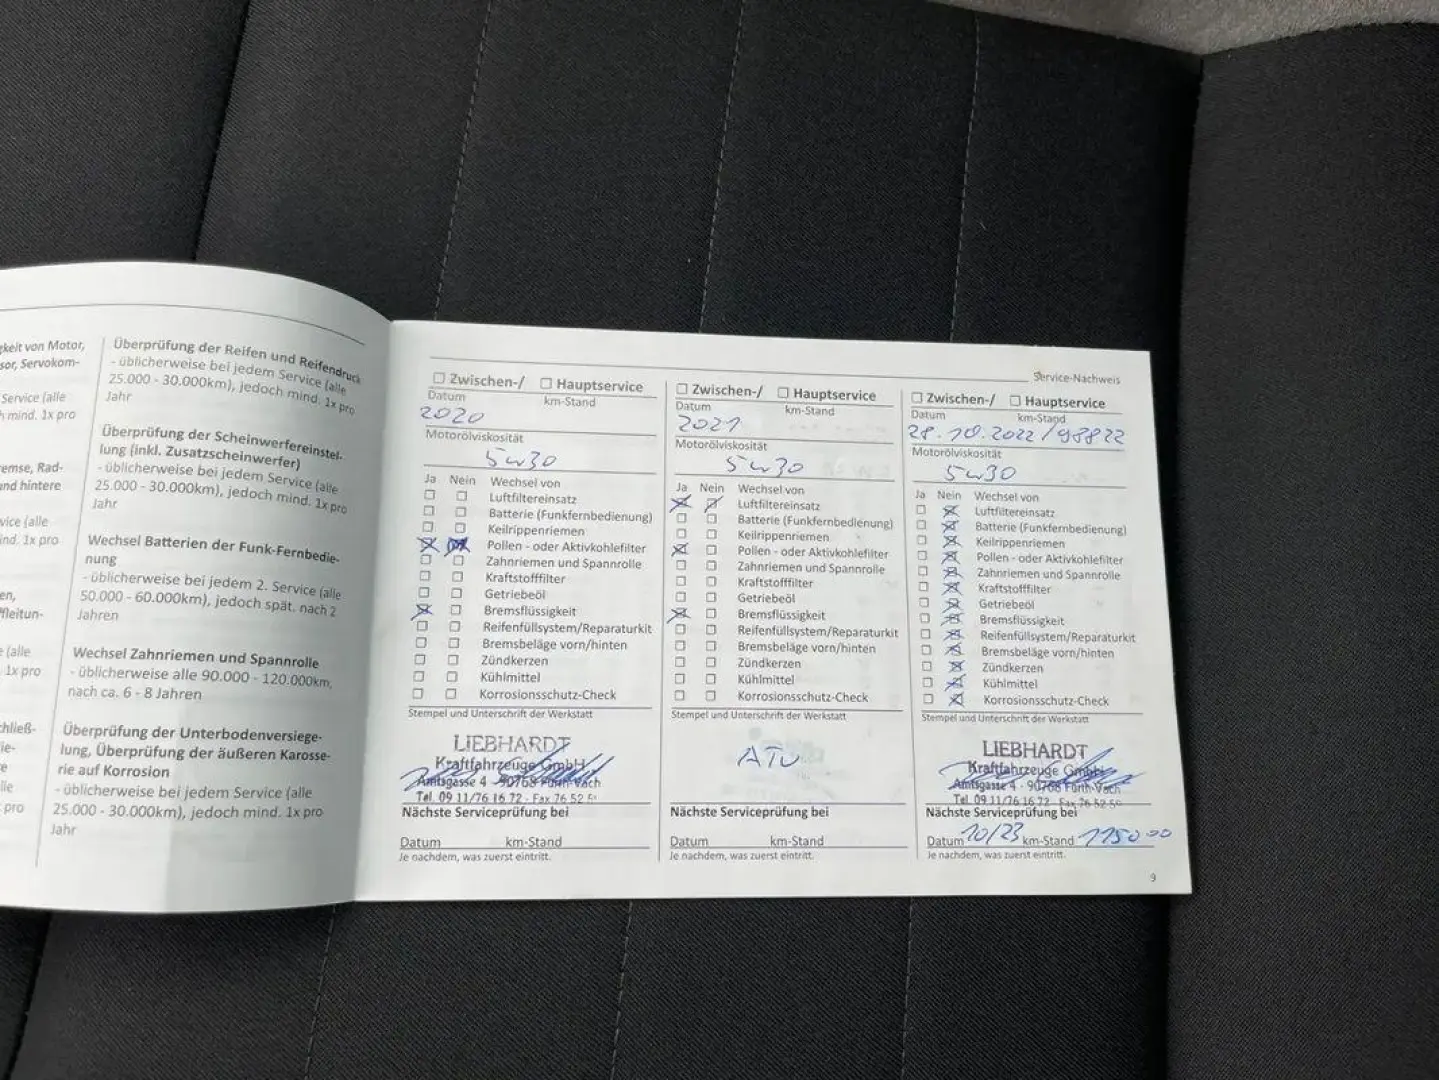 gkeit von Motor,
sor, Servokom-
Service (alle
h mind. 1x pro
emse, Rad-
und hintere
vice (alle
ind. 1x pro
en,
ffleitun-
e (alle
1x pro
chließ-
ie-
e
lle
pro
Überprüfung der Reifen und Reifendruck
- üblicherweise bei jedem Service (alle
25.000 - 30.000km), jedoch mind. 1x pro
Jahr
Überprüfung der Scheinwerfereinstel-
lung (inkl. Zusatzscheinwerfer)
- üblicherweise bei jedem Service (alle
25.000 - 30.000km), jedoch mind. 1x pro
Jahr
Wechsel Batterien der Funk-Fernbedie-
nung
- üblicherweise bei jedem 2. Service (alle
50.000 - 60.000km), jedoch spät. nach 2
Jahren
Wechsel Zahnriemen und Spannrolle
- üblicherweise alle 90.000 - 120.000km,
nach ca. 6 - 8 Jahren
Überprüfung der Unterbodenversiege-
lung, Überprüfung der äußeren Karosse-
rie auf Korrosion
- üblicherweise bei jedem Service (alle
25.000 - 30.000km), jedoch mind. 1x pro
Jahr
Service-Nachweis
Zwischen-/ Hauptservice
Datum km-Stand
2020
Motorölviskosität
5w30
Ja Nein Wechsel von
Luftfiltereinsatz
Batterie (Funkfernbedienung)
Keilrippenriemen
Pollen - oder Aktivkohlefilter
Zahnriemen und Spannrolle
Kraftstofffilter
Getriebeöl
Bremsflüssigkeit
Reifenfüllsystem/Reparaturkit
Bremsbeläge vorn/hinten
Zündkerzen
Kühlmittel
Korrosionsschutz-Check
Stempel und Unterschrift der Werkstatt
LIEBHARDT
Kraftfahrzeuge GmbH
Amtsgasse 4 · 90768 Fürth-Vach
Tel. 09 11/76 16 72 · Fax 76 52 5
Nächste Serviceprüfung bei
Datum km-Stand
Je nachdem, was zuerst eintritt.
Zwischen-/ Hauptservice
Datum km-Stand
2021
Motorölviskosität
5w30
Ja Nein Wechsel von
Luftfiltereinsatz
Batterie (Funkfernbedienung)
Keilrippenriemen
Pollen - oder Aktivkohlefilter
Zahnriemen und Spannrolle
Kraftstofffilter
Getriebeöl
Bremsflüssigkeit
Reifenfüllsystem/Reparaturkit
Bremsbeläge vorn/hinten
Zündkerzen
Kühlmittel
Korrosionsschutz-Check
Stempel und Unterschrift der Werkstatt
ATU
Nächste Serviceprüfung bei
Datum km-Stand
Je nachdem, was zuerst eintritt.
Zwischen-/ Hauptservice
Datum km-Stand
28.10.2022/98822
Motorölviskosität
5w30
Ja Nein Wechsel von
Luftfiltereinsatz
Batterie (Funkfernbedienung)
Keilrippenriemen
Pollen - oder Aktivkohlefilter
Zahnriemen und Spannrolle
Kraftstofffilter
Getriebeöl
Bremsflüssigkeit
Reifenfüllsystem/Reparaturkit
Bremsbeläge vorn/hinten
Zündkerzen
Kühlmittel
Korrosionsschutz-Check
Stempel und Unterschrift der Werkstatt
LIEBHARDT
Kraftfahrzeuge GmbH
Amtsgasse 4 · 90768 Fürth-Vach
Tel. 09 11/76 16 72 · Fax 76 52 5
Nächste Serviceprüfung bei
Datum 10/23 km-Stand 115000
Je nachdem, was zuerst eintritt.
9